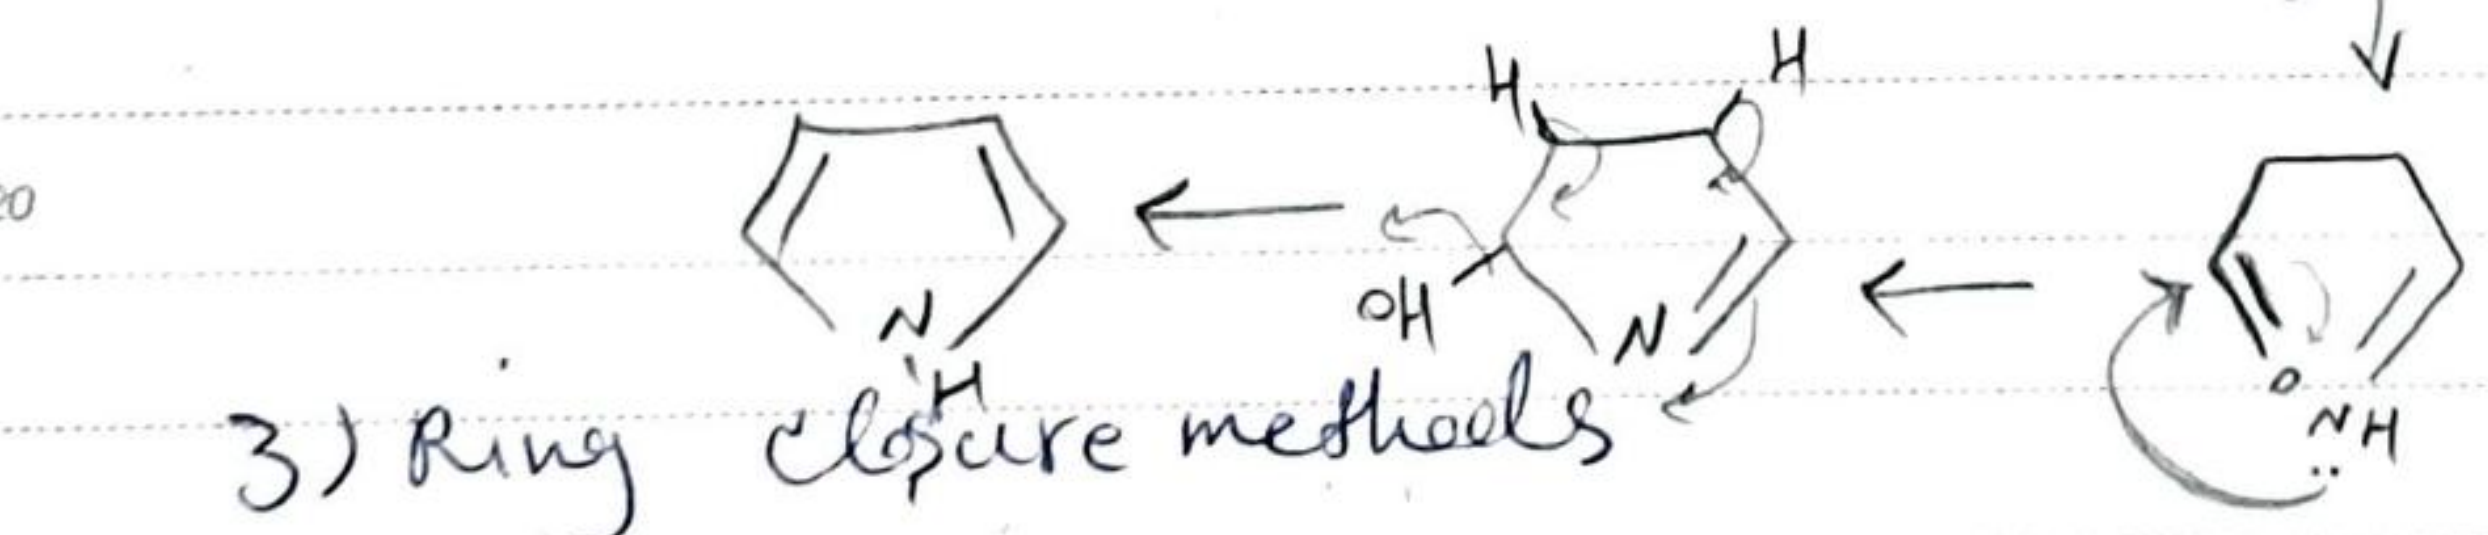 H H
20
OH N
N O
H NH
..
3) Ring closure methods